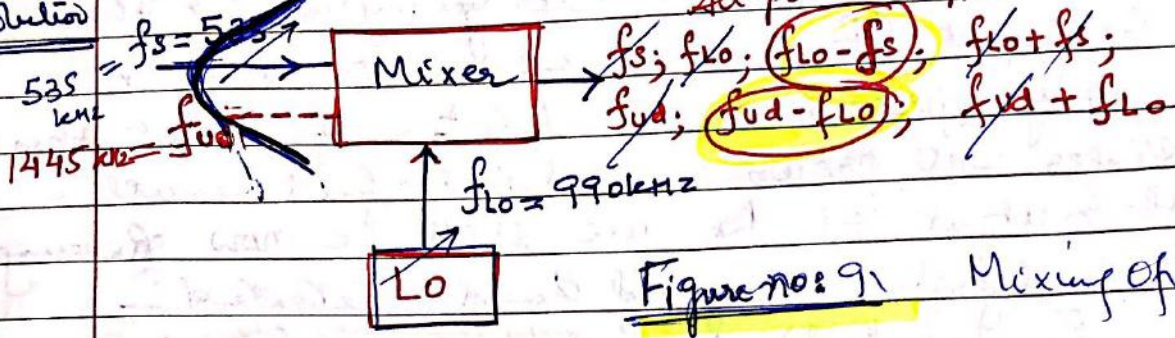 fs = 535
535 kHz =
1445 kHz = fud
Mixer
fs; fLo; fLo-fs; fLo+fs;
fud; fud-fLo; fud + fLo
fLo = 990kHz
LO
Figure no: 9\ Mixing Of